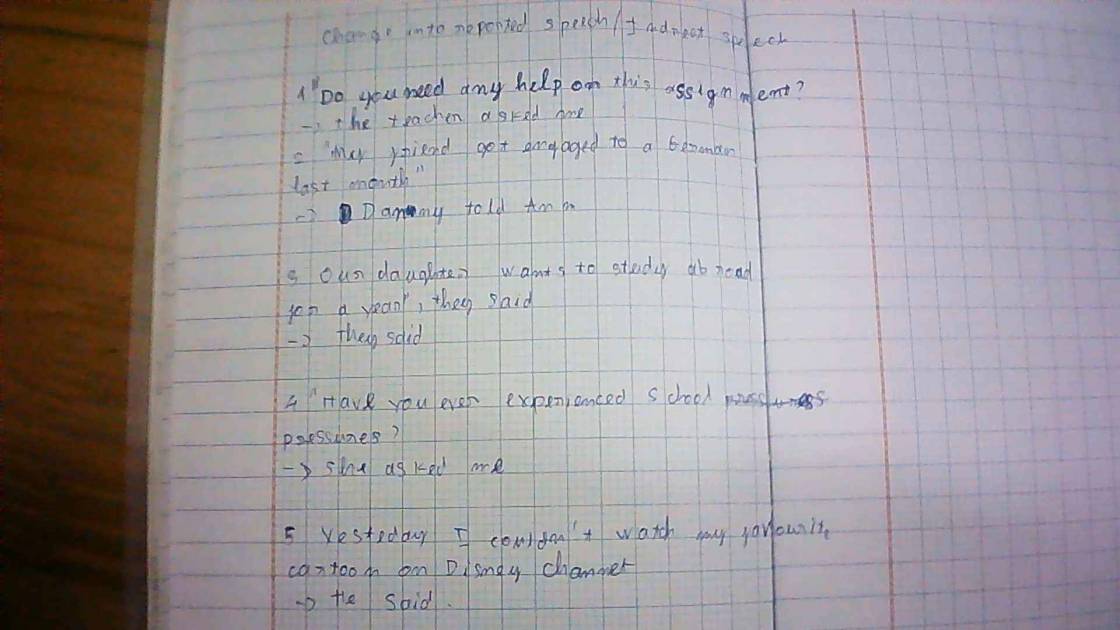 Change into reported speech/Indirect speech
1 "Do you need any help on this assignment?
-> the teacher asked me
2 "My friend got engaged to a German
last month"
-> Danny told Ann
3 Our daughter wants to study abroad
for a year", they said
-> they said
4 "Have you ever experienced school
pressures?
-> She asked me
5 Yesteday I couldn't watch my favourite
cartoon on Disney Channel
-> He said.